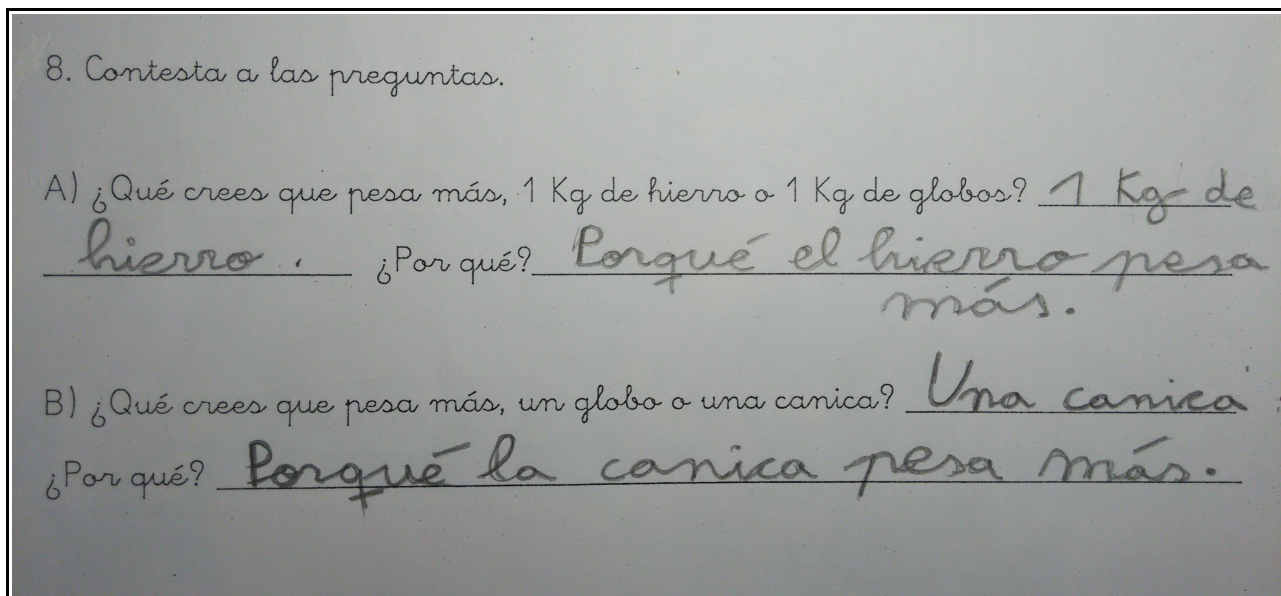 8. Contesta a las preguntas.
A) ¿Qué crees que pesa más, 1 Kg de hierro o 1 Kg de globos? 1 Kg de
hierro. ¿Por qué? Porqué el hierro pesa
más.
B) ¿Qué crees que pesa más, un globo o una canica? Una canica
¿Por qué? Porqué la canica pesa más.